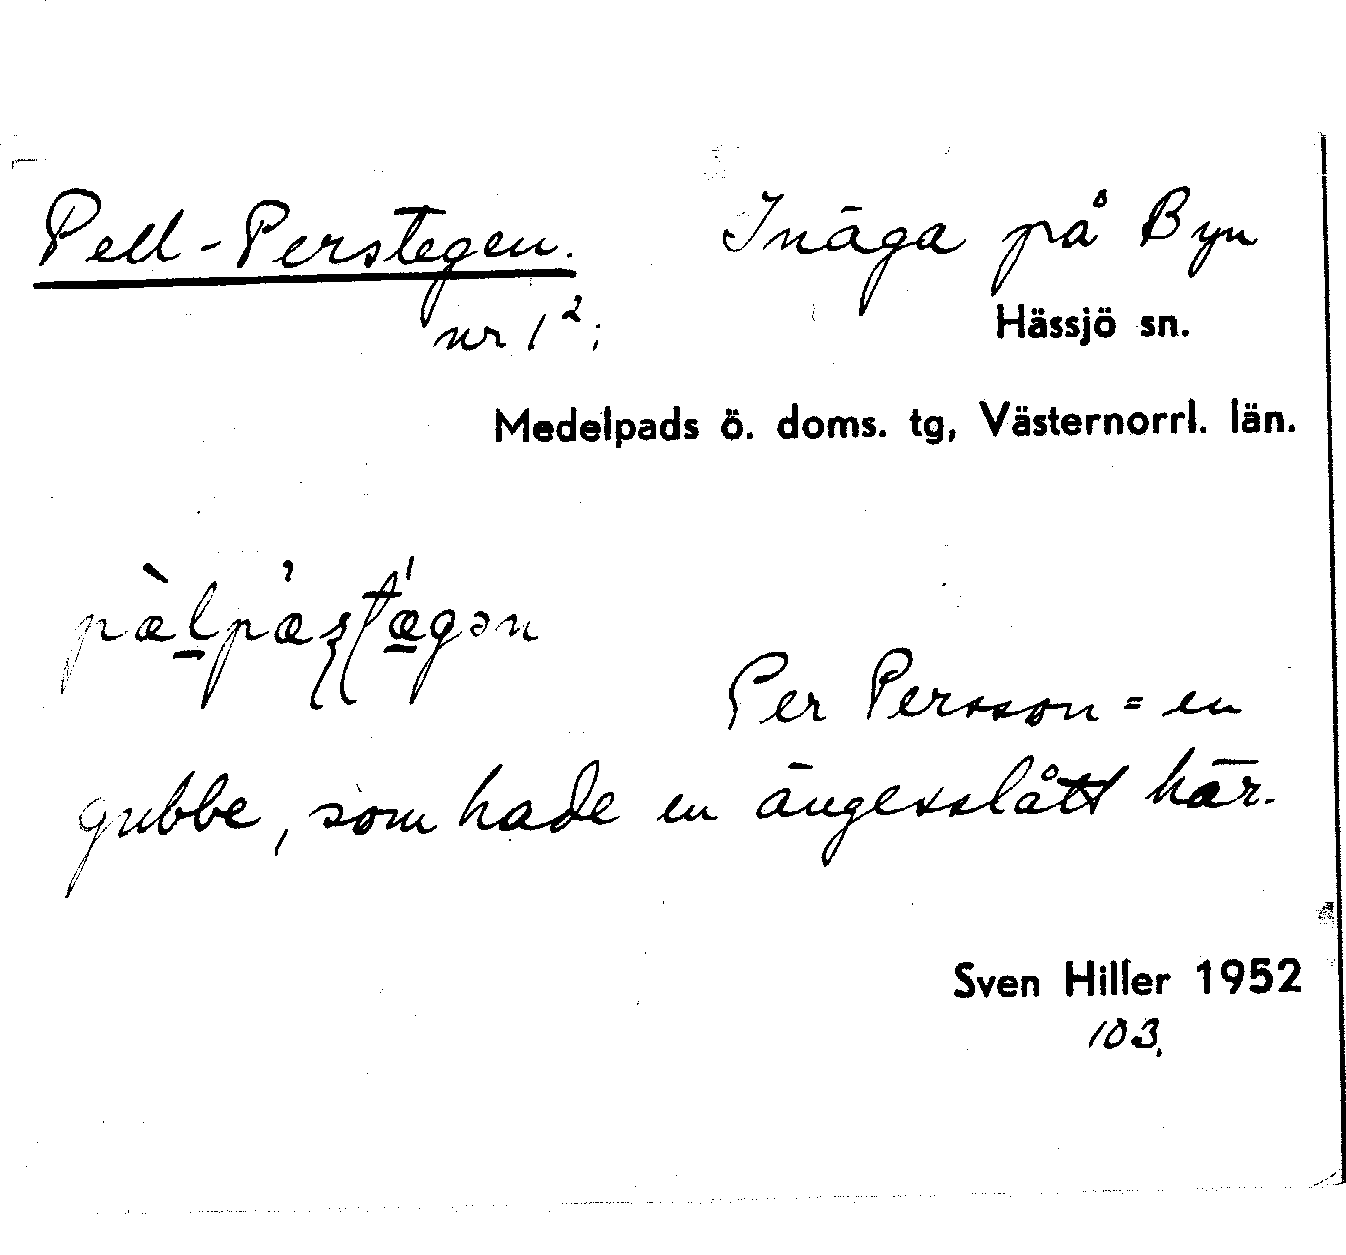 Pell-Perstegen. Inäga på Byn
nr 1²;
Hässjö sn.
Medelpads ö. doms. tg, Västernorrl. län.
Per Persson = en
gubbe, som hade en ängesslått här.
Sven Hiller 1952
103.